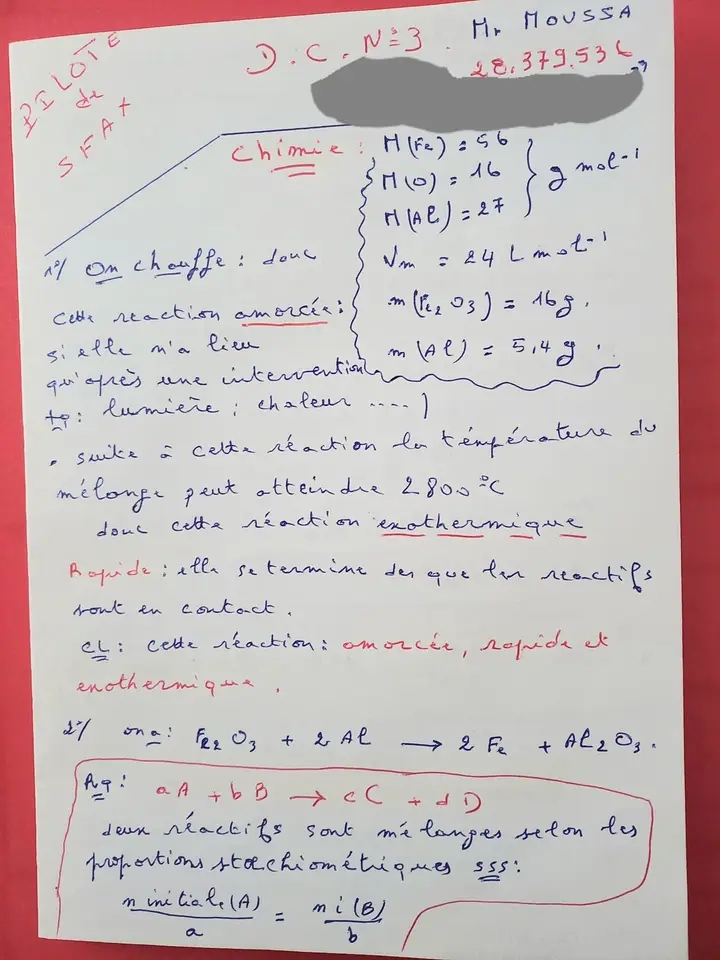 PILOTE
de
SFAX
D.C. N°3. Mr MOUSSA
28.379.536
Chimie :
M(Fe) = 56
M(O) = 16
M(Al) = 27
g mol-1
Vm = 24 L mol-1
m(Fe2O3) = 16g.
m(Al) = 5,4 g.
1°/ On chauffe : donc
cette reaction amorcée :
si elle n'a lieu
qu'après une intervention
: lumière ; chaleur ....)
. suite à cette réaction la témpérature du
mélange peut atteindre 2800°C
donc cette réaction exothermique
Rapide : elle se termine des que les reactifs
sont en contact.
CL : cette réaction : amorcée, rapide et
exothermique.
2°/ on a : Fe2O3 + 2 Al → 2 Fe + Al2O3.
Rq : aA + bB → cC + dD
deux réactifs sont mélanges selon les
proportions stœchiométriques sss :
n initiale(A)/a = ni(B)/b